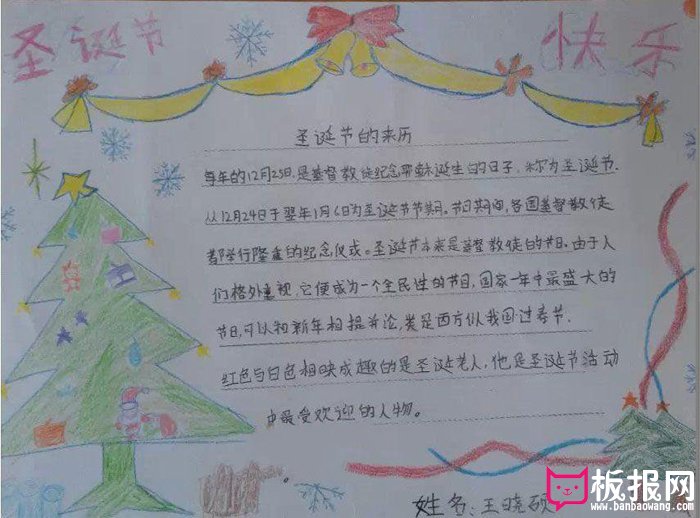 圣诞节 快乐
圣诞节的来历
每年的12月25日,是基督教徒纪念耶稣诞生的日子,称为圣诞节.
从12月24日于翌年1月6日为圣诞节节期。节日期间,各国基督教徒
都举行隆重的纪念仪式。圣诞节本来是基督教徒的节日,由于人
们格外重视,它便成为一个全民性的节日,国家一年中最盛大的
节日,可以和新年相提并论,类是西方似我国过春节.
红色与白色相映成趣的是圣诞老人,他是圣诞节活动
中最受欢迎的人物。
姓名:王晓硕
板报网
www.banbaowang.com